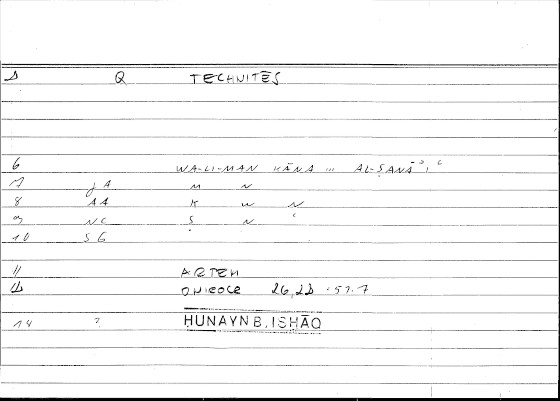 Q TECHNITĒS
6 WA-LI-MAN KĀNA ... AL-ṢANĀʾIʿ
7 JA M N
8 AA K W N
9 NC Ṣ N ʿ
10 SG
11 ARTEM
26,22 57.7
14 ? HUNAYN B. ISHĀQ